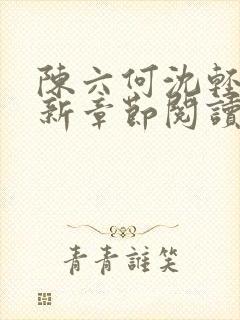 陳六何沈輕
新章節閱讀
青青誰笑